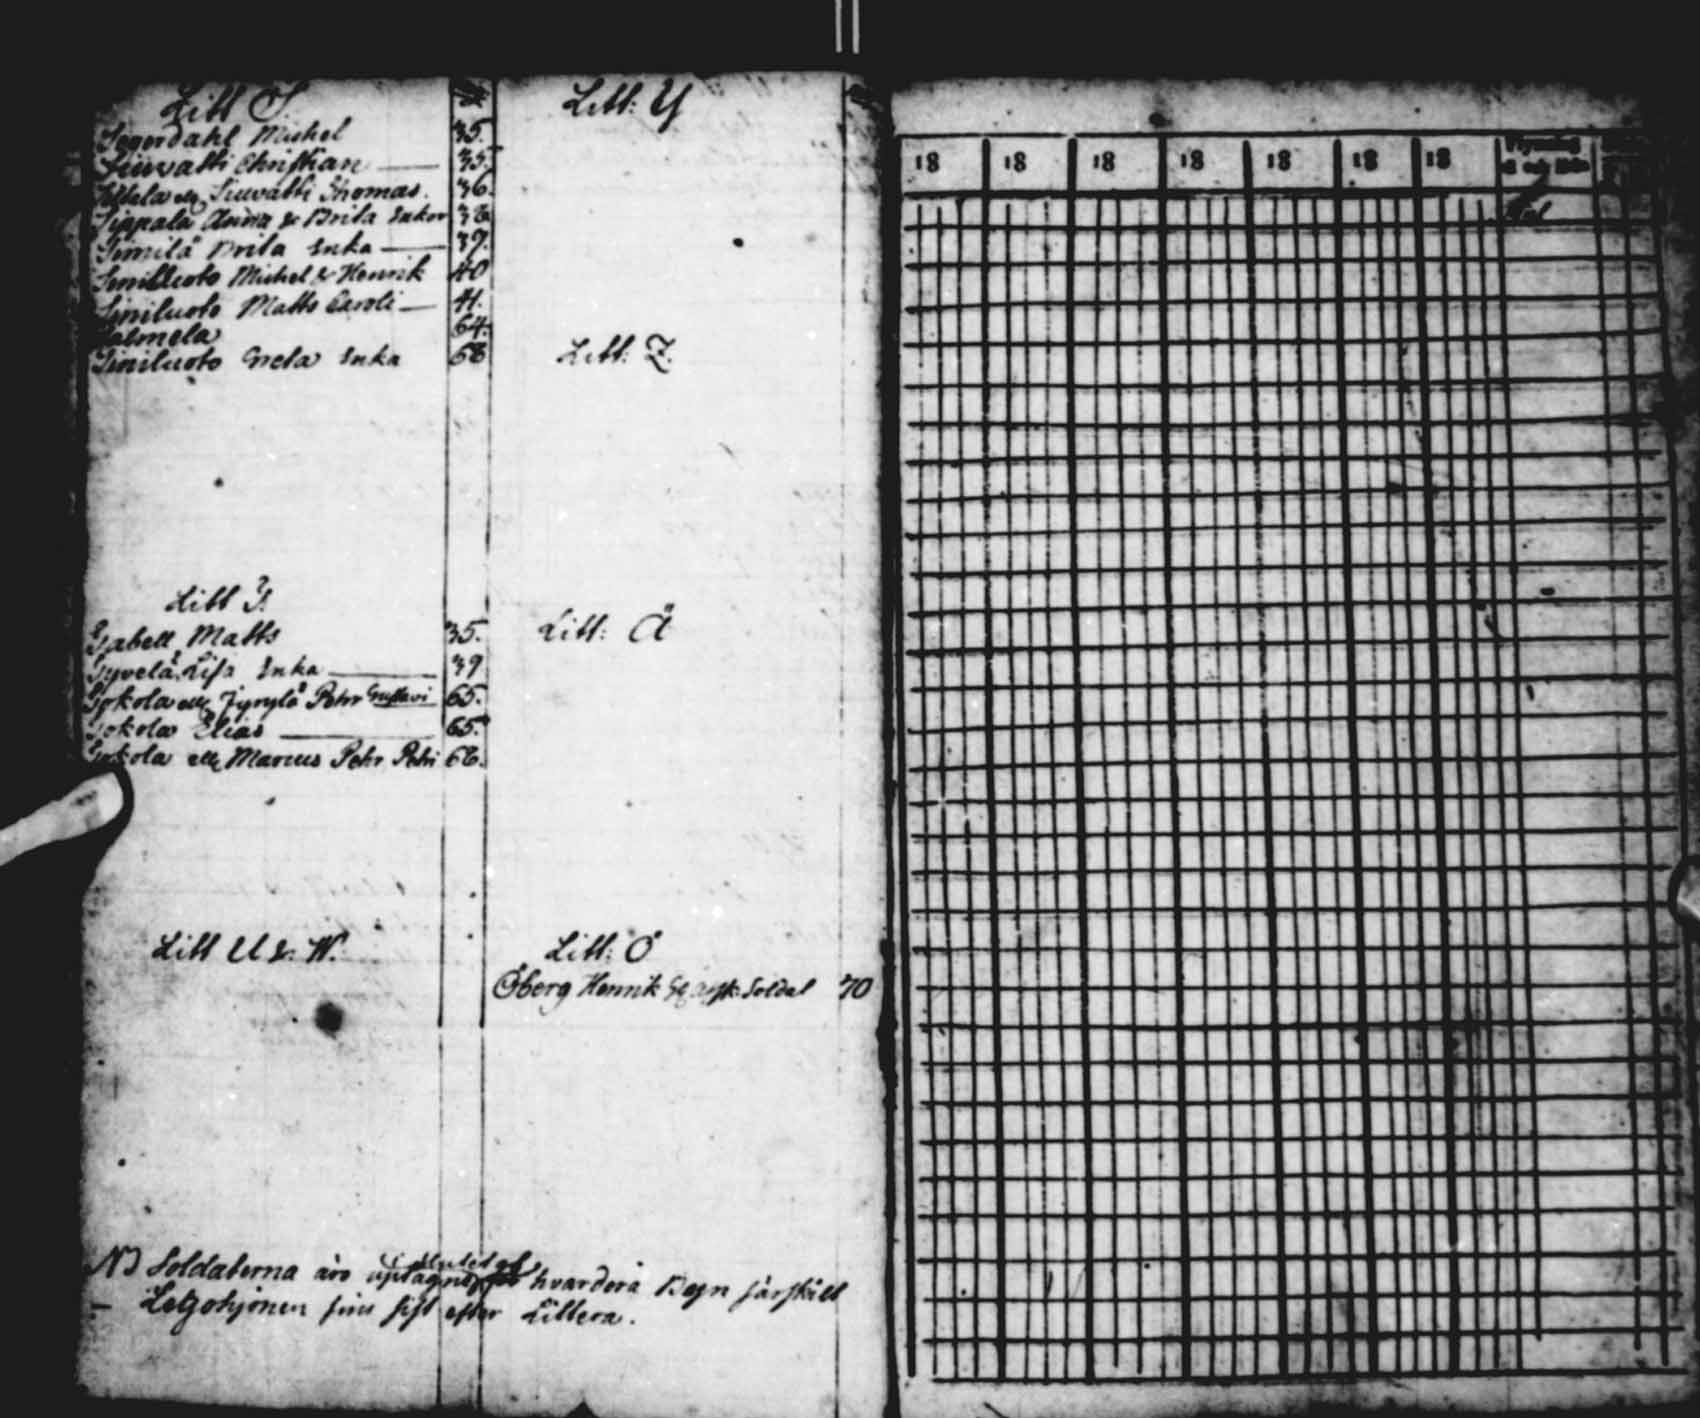 Litt S.
Segerdahl Michel 35.
Siuvatti Christian 35.
Siuvatti Thomas. 36.
Sippala Anna & Brita Enkor 38
Similä Brita Enka 39.
Siniluoto Michel & Henrik 40
Siniluoto Matts Caroli 41.
Salmela 64.
Siniluoto Greta Enka 68
Litt T.
Tabell Matts 35.
Tyvelä Lisa Enka 39
Tokola ell Jyrylä Petter Gustavi 65.
Tokola Elias 65.
Tokola ell Marcus Pehr Petri 66.
Litt U & W.
Litt: Y
Litt: Z.
Litt: Ä
Litt: Ö
Öberg Henrik Soldat 70
NB Soldaterna äro uptagne hvardera Byn särskilt
Legohjonen sist efter Littera.
18 18 18 18 18 18 18